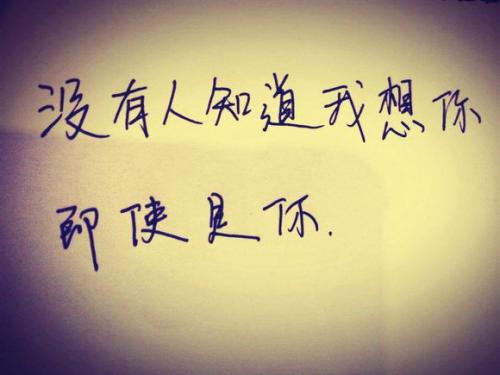 没有人知道我想你
即使是你.